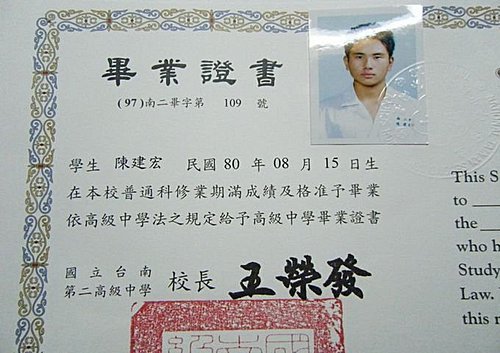 畢業證書
(97)南二畢字第 109 號
學生 陳建宏 民國 80 年 08 月 15 日生
在本校普通科修業期滿成績及格准予畢業
依高級中學法之規定給予高級中學畢業證書
國立台南
第二高級中學 校長 王榮發
This S
to
the
who h
Study
Law.
this r